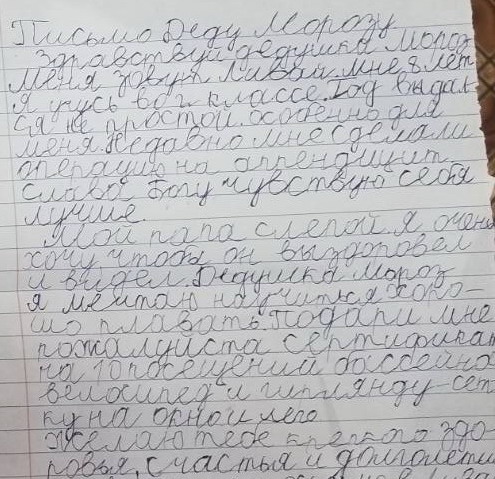 Письмо Деду Морозу
Здравствуй дедушка Мороз
меня зовут Ливай мне 8 лет
Я учусь во 2 классе. Год выдал-
ся не простой особенно для
меня. Недавно мне сделали
операцию на аппендицит
Слава Богу чувствую себя
лучше.
Мой папа слепой я очень
хочу, чтобы он выздоровел
и видел. Дедушка Мороз
я мечтаю научиться хоро-
шо плавать. Подари мне
пожалуйста сертификат
на 10 посещений бассейна
велосипед и гирлянду-сет
ку на окно и лего
желаю тебе крепкого здо-
ровья, счастья и долголетия